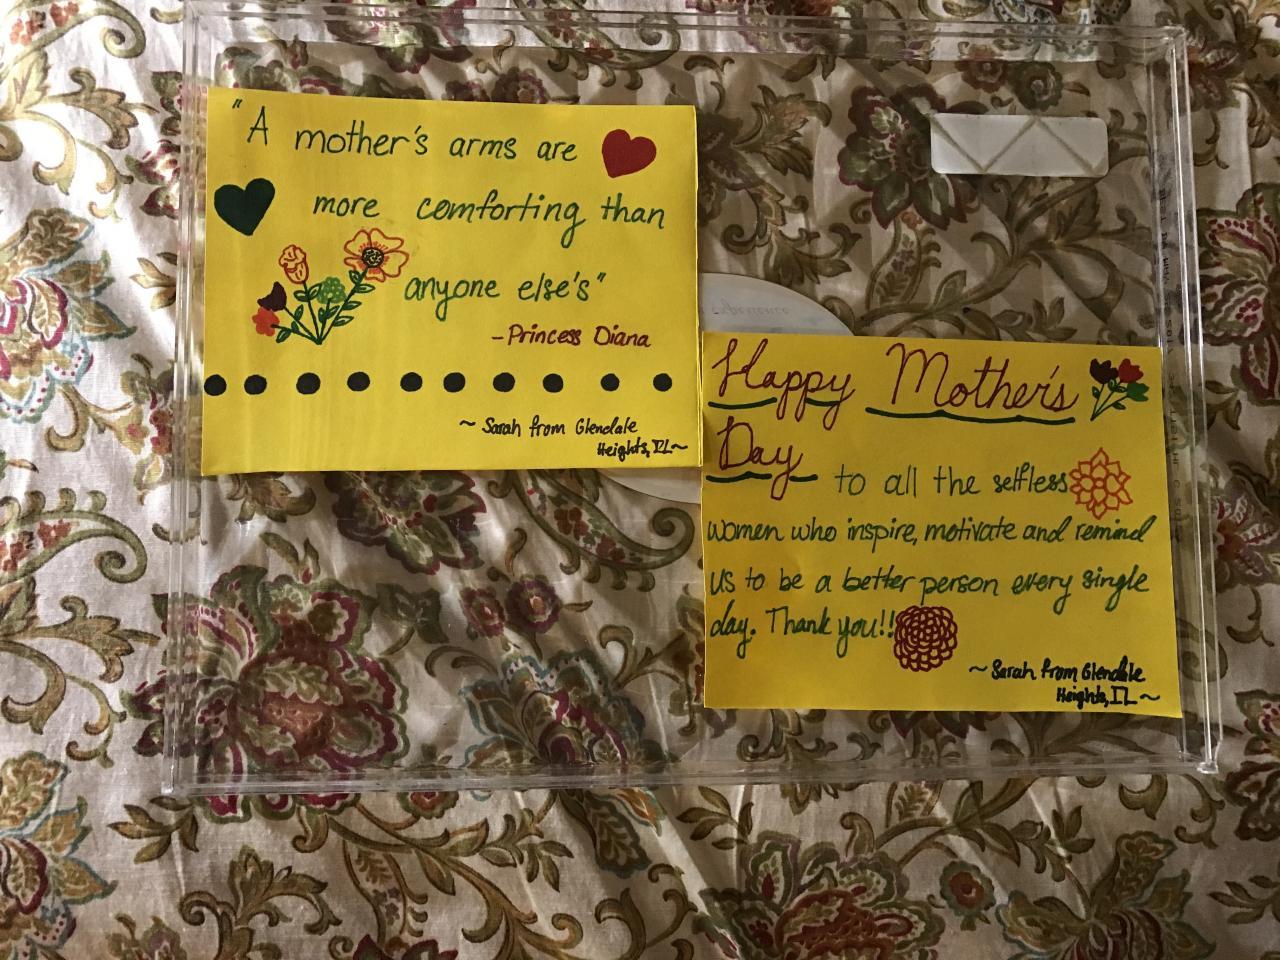 "A mother's arms are
more comforting than
anyone else's"
-Princess Diana
~ Sarah from Glendale
Heights, IL~
Happy Mother's
Day to all the selfless
women who inspire, motivate and remind
us to be a better person every single
day. Thank you!!
~Sarah from Glendale
Heights, IL~
experience